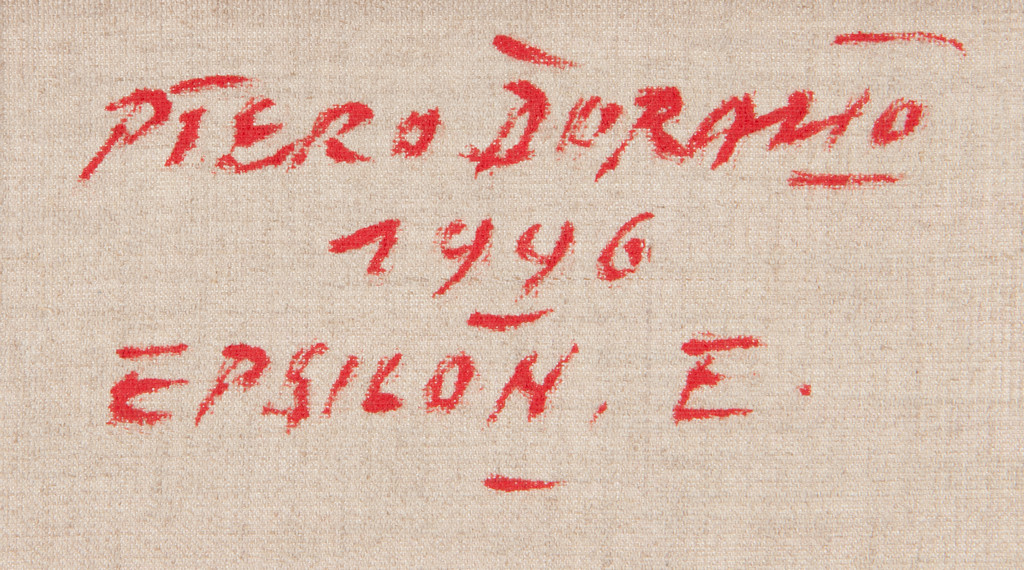 PIERO DORAZIO
1996
EPSILON, E.